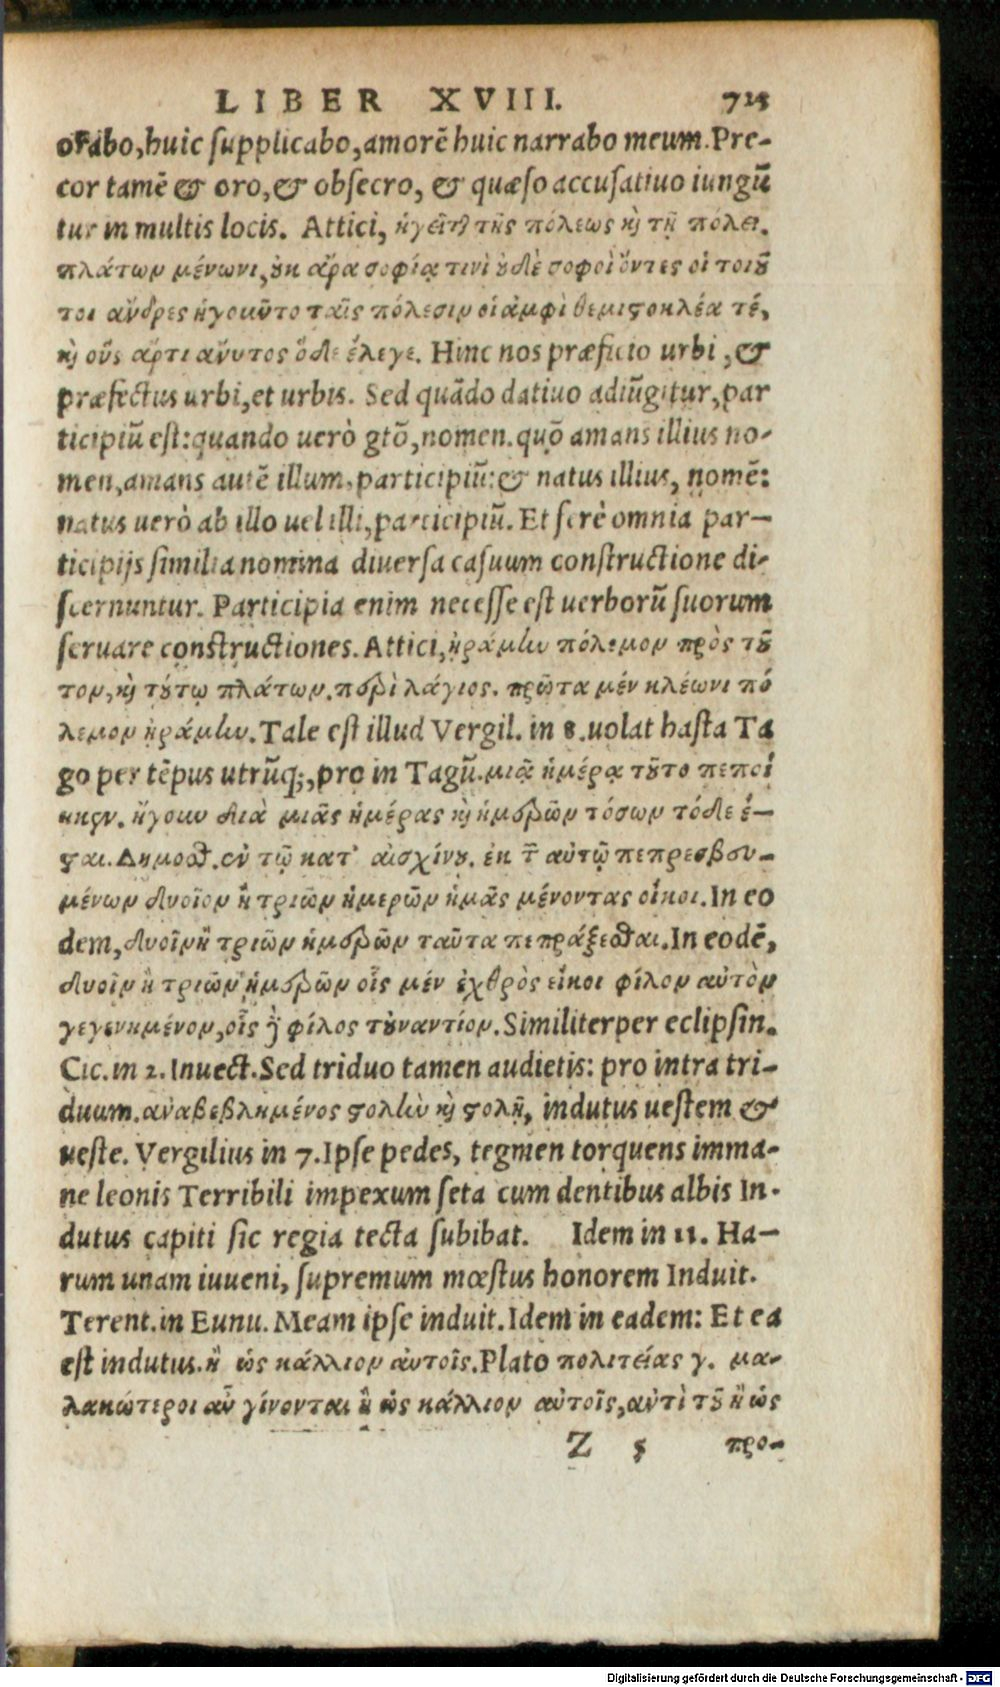 LIBER XVIII. 725
orabo, huic supplicabo, amorē huic narrabo meum. Pre-
cor tamē & oro, & obsecro, & quæso accusatiuo iungū
tur in multis locis. Attici, ἡγεῖται τῆς πόλεως καὶ τῇ πόλει.
πλάτων μένωνι, οὐκ ἄρα σοφίᾳ τινὶ οὐδὲ σοφοὶ ὄντες οἱ τοιοῦ
τοι ἄνδρες ἡγοῦντο ταῖς πόλεσιν οἱ ἀμφὶ θεμιστοκλέα τέ,
καὶ οὓς ἄρτι ἄνυτος ὅδε ἔλεγε. Hinc nos præficio urbi, &
præfectus urbi, et urbis. Sed quādo datiuo adiūgitur, par
ticipiū est: quando uerò gtō, nomen. quō amans illius no-
men, amans autē illum, participiū: & natus illius, nomē:
natus uerò ab illo uel illi, participiū. Et ferè omnia par-
ticipijs similia nomina diuersa casuum constructione di-
scernuntur. Participia enim necesse est uerborū suorum
seruare constructiones. Attici, ἠράμην πόλεμον πρὸς τοῦ
τον, καὶ τούτῳ πλάτων. περὶ λάγιος. πρῶτα μέν κλέωνι πό
λεμον ἠράμην. Tale est illud Vergil. in 8. uolat hasta Ta
go per tēpus utrūq;, pro in Tagū. μιᾷ ἡμέρᾳ τοῦτο πεποί
ηκεν. ἤγουν διὰ μιᾶς ἡμέρας καὶ ἡμερῶν τόσων τόδε ἔ-
σται. Δημοσθ. ἐν τῷ κατ' αἰσχίνου. ἐκ τ αὐτῷ πεπρεσβευ-
μένων δυοῖον ἢ τριῶν ἡμερῶν ἡμᾶς μένοντας οἴκοι. In eo
dem, δυοῖν ἢ τριῶν ἡμερῶν ταῦτα πεπράξεσθαι. In eodē,
δυοῖν ἢ τριῶν ἡμερῶν οἷς μέν ἐχθρὸς εἴκοι φίλον αὐτὸν
γεγενημένον, οἷς δὲ φίλος τοὐναντίον. Similiter per eclipsin.
Cic. in 2. Inuect. Sed triduo tamen audietis: pro intra tri-
duum. ἀναβεβλημένος στολὴν καὶ στολῇ, indutus uestem &
ueste. Vergilius in 7. Ipse pedes, tegmen torquens imma-
ne leonis Terribili impexum seta cum dentibus albis In-
dutus capiti sic regia tecta subibat. Idem in 11. Ha-
rum unam iuueni, supremum mœstus honorem Induit.
Terent. in Eunu. Meam ipse induit. Idem in eadem: Et ea
est indutus. ἢ ὡς κάλλιον αὐτοῖς. Plato πολιτείας γ. μα-
λακώτεροι αὖ γίνονται ἢ ὡς κάλλιον αὐτοῖς, ἀντὶ τοῦ ἢ ὡς
Z 5 προ-
Digitalisierung gefördert durch die Deutsche Forschungsgemeinschaft - DFG